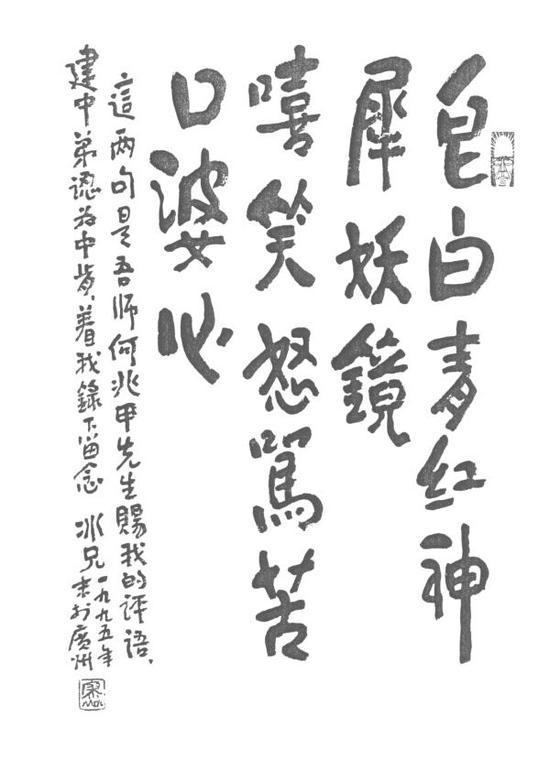 皂白青红神
犀妖鏡
嘻笑怒駡苦
口婆心
這两句是吾师何兆甲先生賜我的评语、
建中弟認为中肯、着我錄下留念 冰兄一九九五年
末於廣州